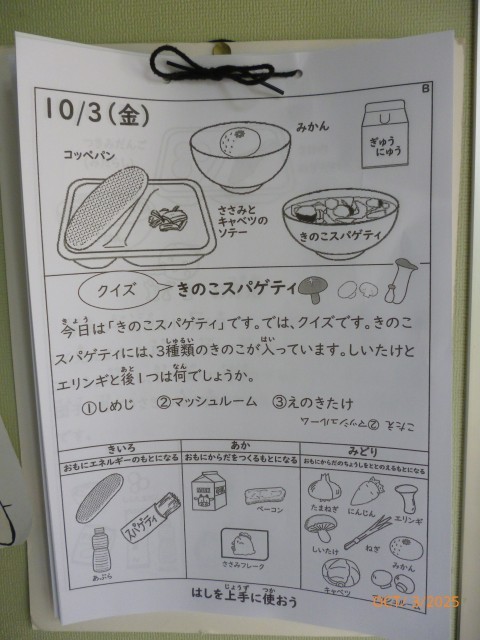 B
10/3(金)
みかん
ぎゅう
にゅう
コッペパン
ささみと
キャベツの
ソテー
きのこスパゲティ
クイズ
きのこスパゲティ
今日は「きのこスパゲティ」です。では、クイズです。きのこ
スパゲティには、3種類のきのこが入っています。しいたけと
エリンギと後1つは何でしょうか。
①しめじ ②マッシュルーム ③えのきたけ
こたえ ②マッシュルーム
きいろ あか みどり
おもにエネルギーのもとになる おもにからだをつくるもとになる おもにからだのちょうしをととのえるもとになる
スパゲティ
あぶら
ベーコン
ささみフレーク
たまねぎ にんじん エリンギ
しいたけ ねぎ みかん
キャベツ
はしを上手に使おう